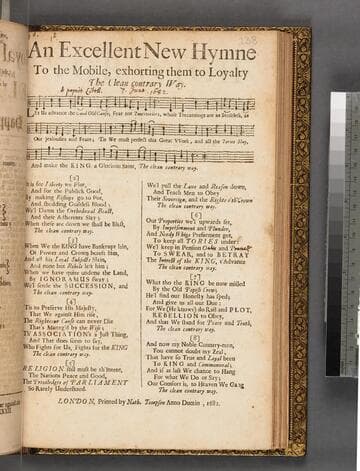 An Excellent New Hymne
To the Mobile, exhorting them to Loyalty
The Clean contrary Way.
Let us advance the Good Old Cause, Fear not
Our Jealousies and Fears; To
must perfect this Great Work, and all the Tories Slay,
And make the KING a Glorious Saint, The clean contrary way.
[2]
It is for Liberty we Plot,
And for the Publick Good,
By making Bishops go to Pot,
And shedding Guiltless Blood:
We'l Damn the Orthodoxal Beast,
And their Adherents Slay;
When these are down we shall be Blest,
The clean contrary way.
[3]
When We the KING have Bankrupt lain,
Of Power and Crown bereft him,
And all his Loyal Subjects Slain,
And none but Rebels left him;
When we have quite undone the Land,
By IGNORAMUS sway;
We'l settle the SUCCESSION, and
The clean contrary way.
[4]
'Tis to Preserve His Majesty,
That We against Him rise,
The Righteous Cause can never Die
That's Manag'd by the Wise;
Th' ASSOCIATION's a Just Thing,
And That does seem to say,
Who Fights for Us, Fights for the KING
The clean contrary way.
[5]
RELIGION still must be th'Intent,
The Nations Peace and Good,
The Priviledges of PARLIAMENT
So Rarely Understood.
We'l pull the Laws and Reason down,
And Teach Men to Obey
Their Sovereign, and the Rights o'th'Crown
The clean contrary way.
[6]
Our Properties we'l upwards set,
By Imprisonment and Plunder,
And Needy Whigs Preferment get,
To keep all TORIES under:
We'l keep in Pension Oates and
To SWEAR, and to BETRAY
The Interest of the KING, t'Advance
The clean contrary way.
[7]
What tho the KING be now misled
By the Old Popish Crew;
He'l find our Honesty has sped;
And give us all our Due:
For We (He knows) do Rail and PLOT,
REBELLION to Obey,
And that We Stand for Peace and Truth,
The clean contrary way.
[8]
And now my Noble Country-men,
You cannot doubt my Zeal,
That have so True and Loyal been
To KING and Commonweal;
And if at last We chance to Hang
For what We Do or Say;
Our Comfort is, to Heaven We Gang
The clean contrary way.
LONDON, Printed by Nath. Thompson Anno Domini, 1682.